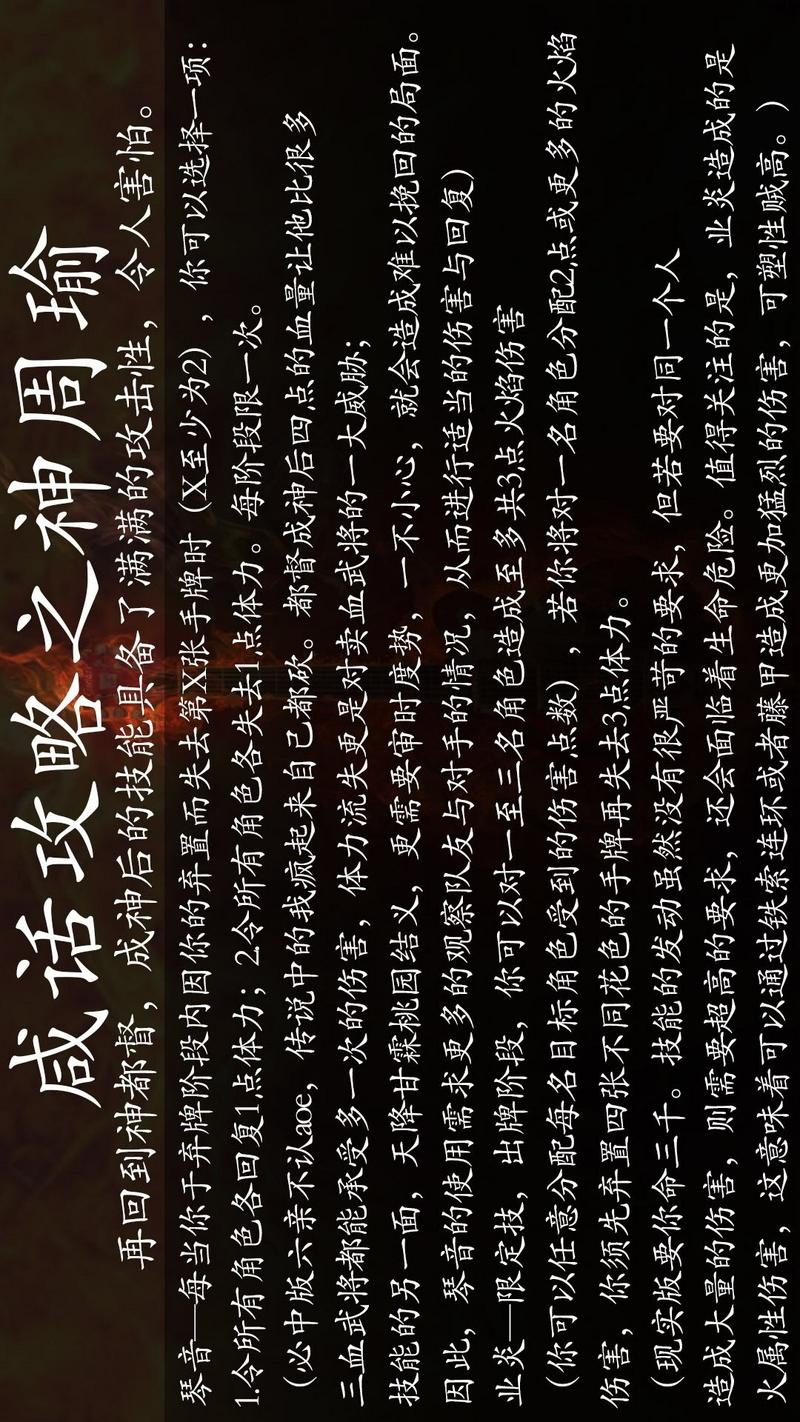 咸话攻略之神周瑜
再回到神都督，成神后的技能具备了满满的攻击性，令人害怕。
琴音—每当你于弃牌阶段内因你的弃置而失去第X张手牌时（X至少为2），你可以选择一项：
1.令所有角色各回复1点体力；2.令所有角色各失去1点体力。每阶段限一次。
（必中版六亲不认aoe，传说中的我疯起来自己都砍。都督成神后四点的血量让他比很多
三血武将都能承受多一次的伤害，体力流失更是对卖血武将的一大威胁；
技能的另一面，天降甘霖桃园结义，更需要审时度势，一不小心，就会造成难以挽回的局面。
因此，琴音的使用需求更多的观察队友与对手的情况，从而进行适当的伤害与回复）
业炎—限定技，出牌阶段，你可以对一至三名角色造成至多共3点火焰伤害
（你可以任意分配每名目标角色受到的伤害点数），若你将对一名角色分配2点或更多的火焰
伤害，你须先弃置四张不同花色的手牌再失去3点体力。
（现实版要你命三千。技能的发动虽然没有很严苛的要求，但若要对同一个人
造成大量的伤害，则需要超高的要求，还会面临着生命危险。值得关注的是，业炎造成的是
火属性伤害，这意味着可以通过铁索连环或者藤甲造成更加猛烈的伤害，可塑性贼高。）